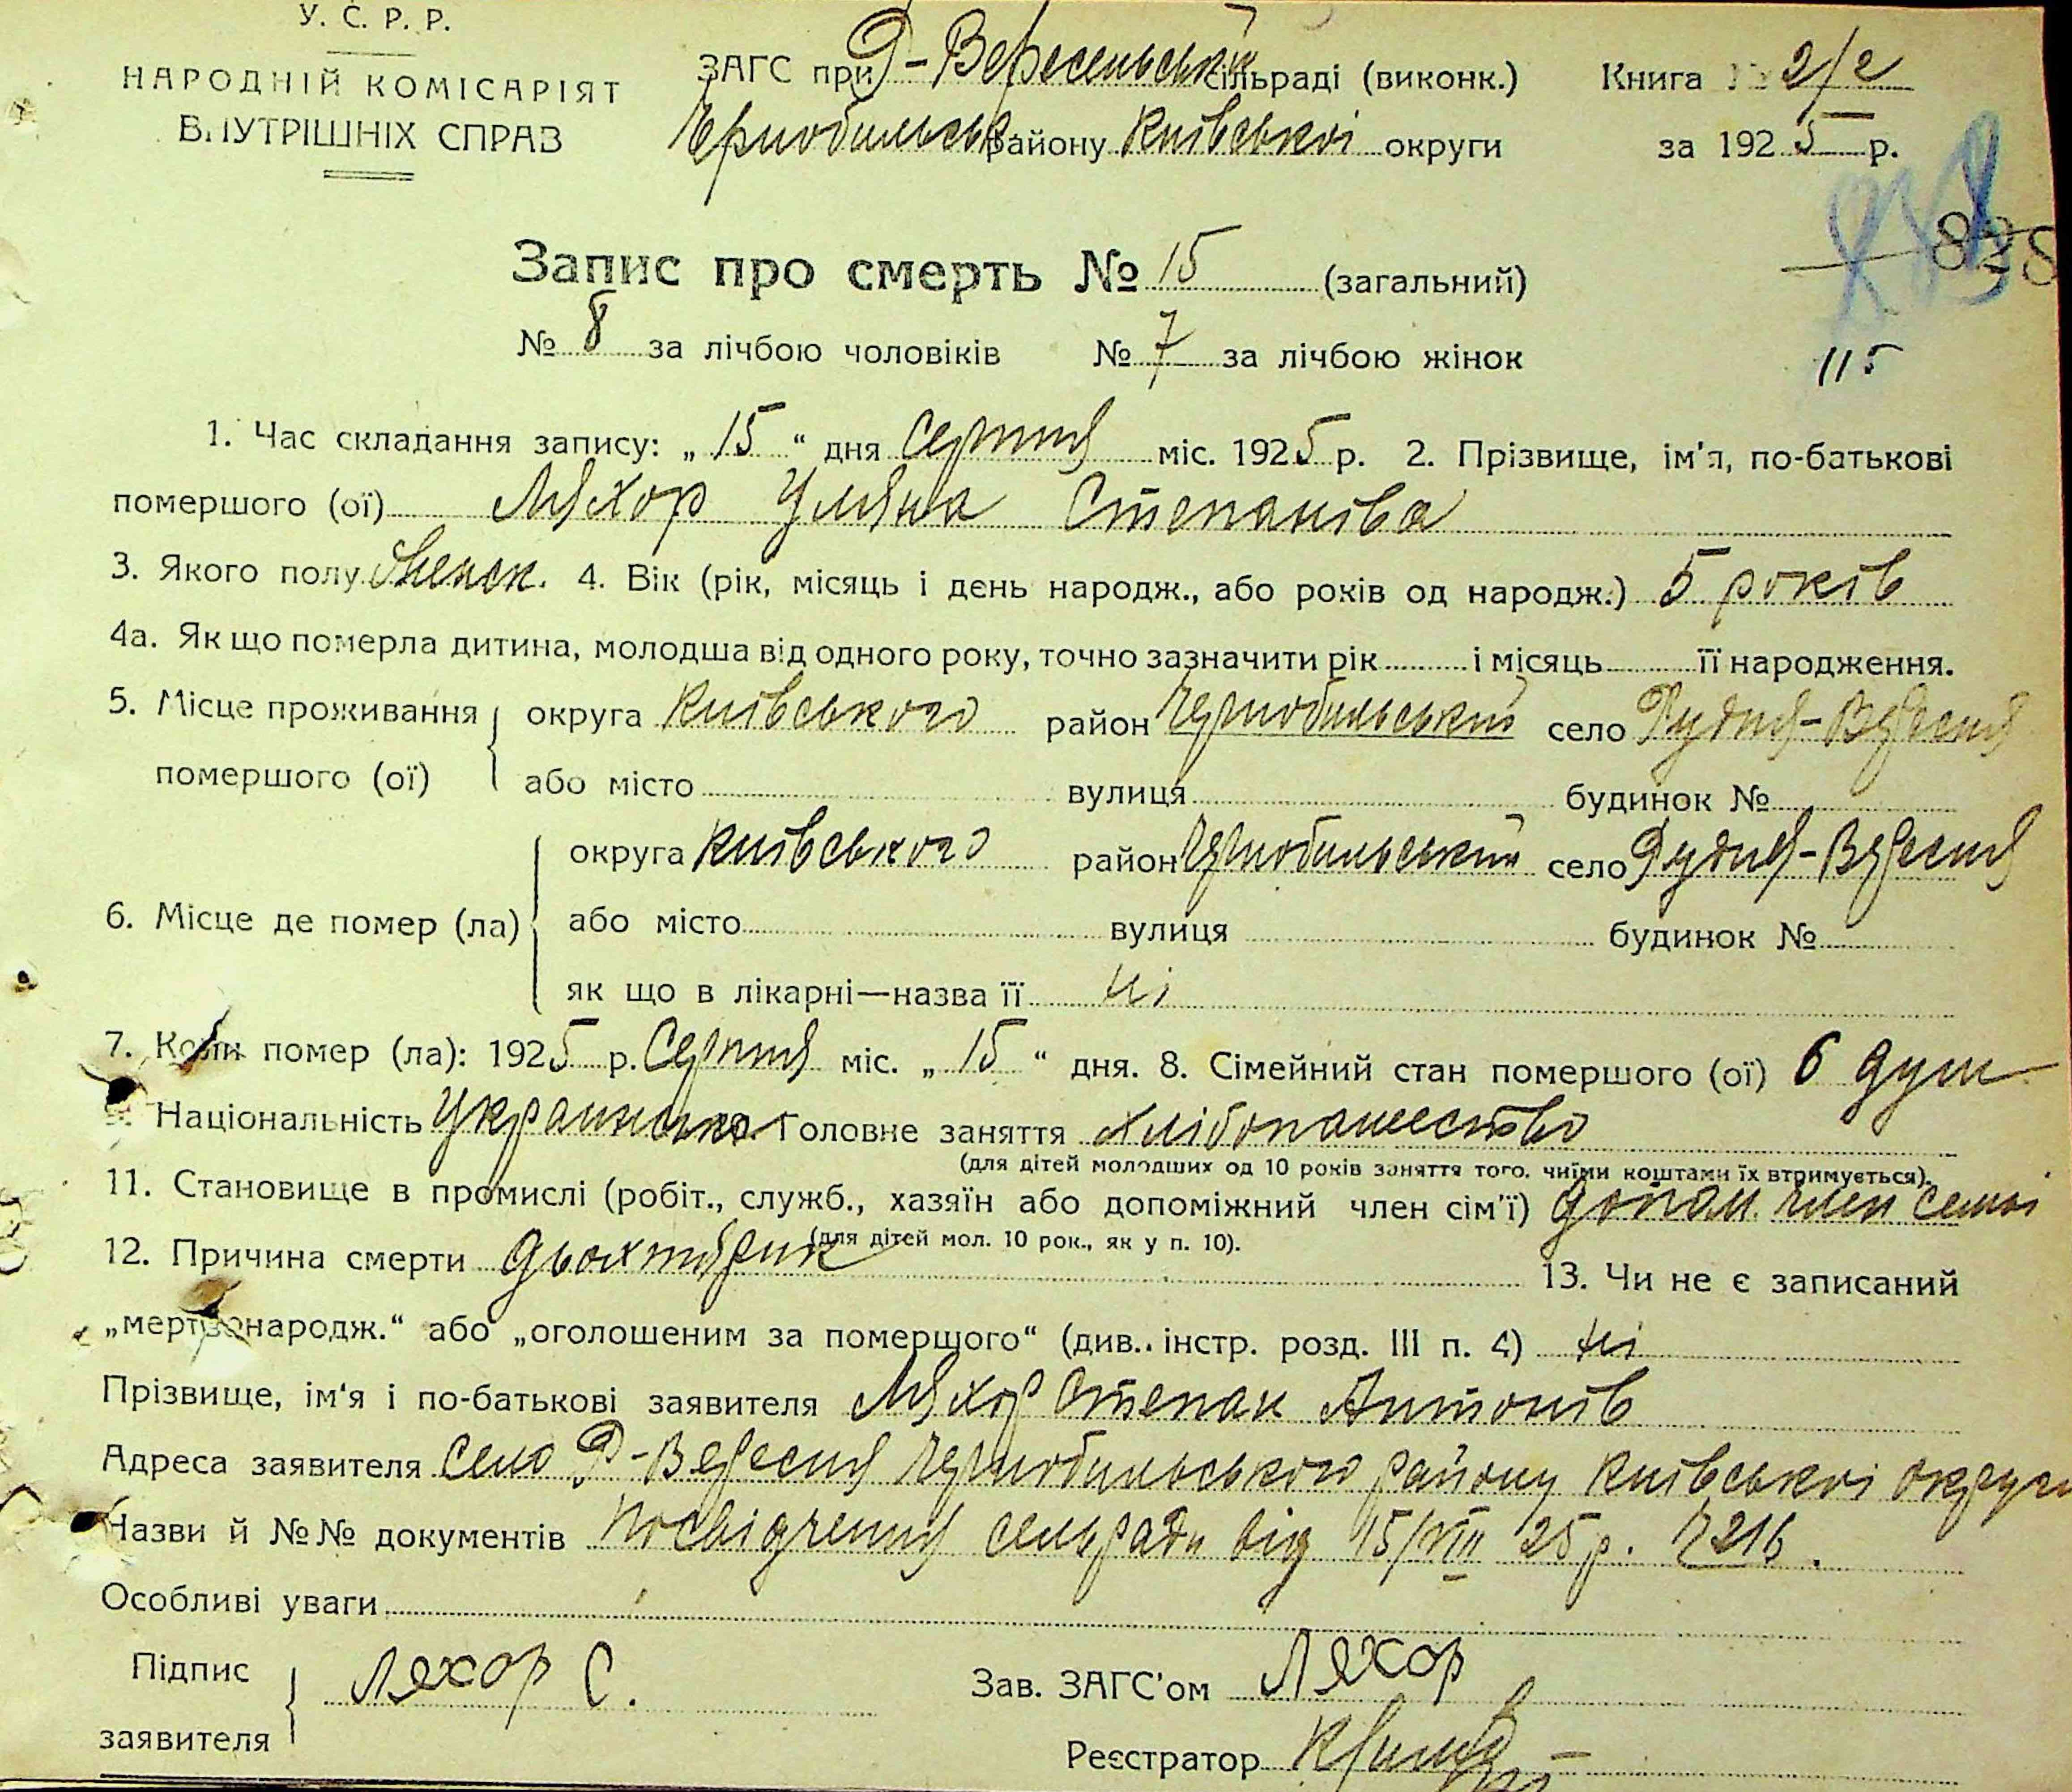 У. С. Р. Р.
НАРОДНІЙ КОМІСАРІЯТ
ВНУТРІШНІХ СПРАВ
ЗАГС при Р-Вересенській сільраді (виконк.)
Чернобильськ району Київської округи
Книга № 2/е
за 1925 р.
838
Запис про смерть № 15 (загальний)
№ 8 за лічбою чоловіків № 7 за лічбою жінок
115
1. Час складання запису: „15“ дня Серпня міс. 1925 р. 2. Прізвище, ім'я, по-батькові
помершого (ої) Ляхор Уляна Степанова
3. Якого полу Женск. 4. Вік (рік, місяць і день народж., або років од народж.) 5 років
4а. Як що померла дитина, молодша від одного року, точно зазначити рік і місяць її народження.
5. Місце проживання округа Київського район Чернобильський село Рудня-Вересня
помершого (ої) або місто вулиця будинок №
округа Київського район Чернобильський село Рудня-Вересня
6. Місце де помер (ла) або місто вулиця будинок №
як що в лікарні—назва її ні
7. Коли помер (ла): 1925 р. Серпня міс. „15“ дня. 8. Сімейний стан помершого (ої) 6 душ
Національність Українська Головне заняття хлібопашество
(для дітей молодших од 10 років заняття того, чиїми коштами їх втримується).
11. Становище в промислі (робіт., служб., хазяїн або допоміжний член сім'ї) допом. член семьі
(для дітей мол. 10 рок., як у п. 10).
12. Причина смерти дьохтярик 13. Чи не є записаний
„мертвонародж.“ або „оголошеним за помершого“ (див. інстр. розд. III п. 4) ні
Прізвище, ім'я і по-батькові заявителя Ляхор Степан Антонів
Адреса заявителя село Р-Вересня Чернобильського району Київської округи
Назви й №№ документів Посвідчення сельради від 15/VIII 25 р. № 216.
Особливі уваги
Підпис
заявителя Ляхор С.
Зав. ЗАГС'ом Ляхор
Реєстратор